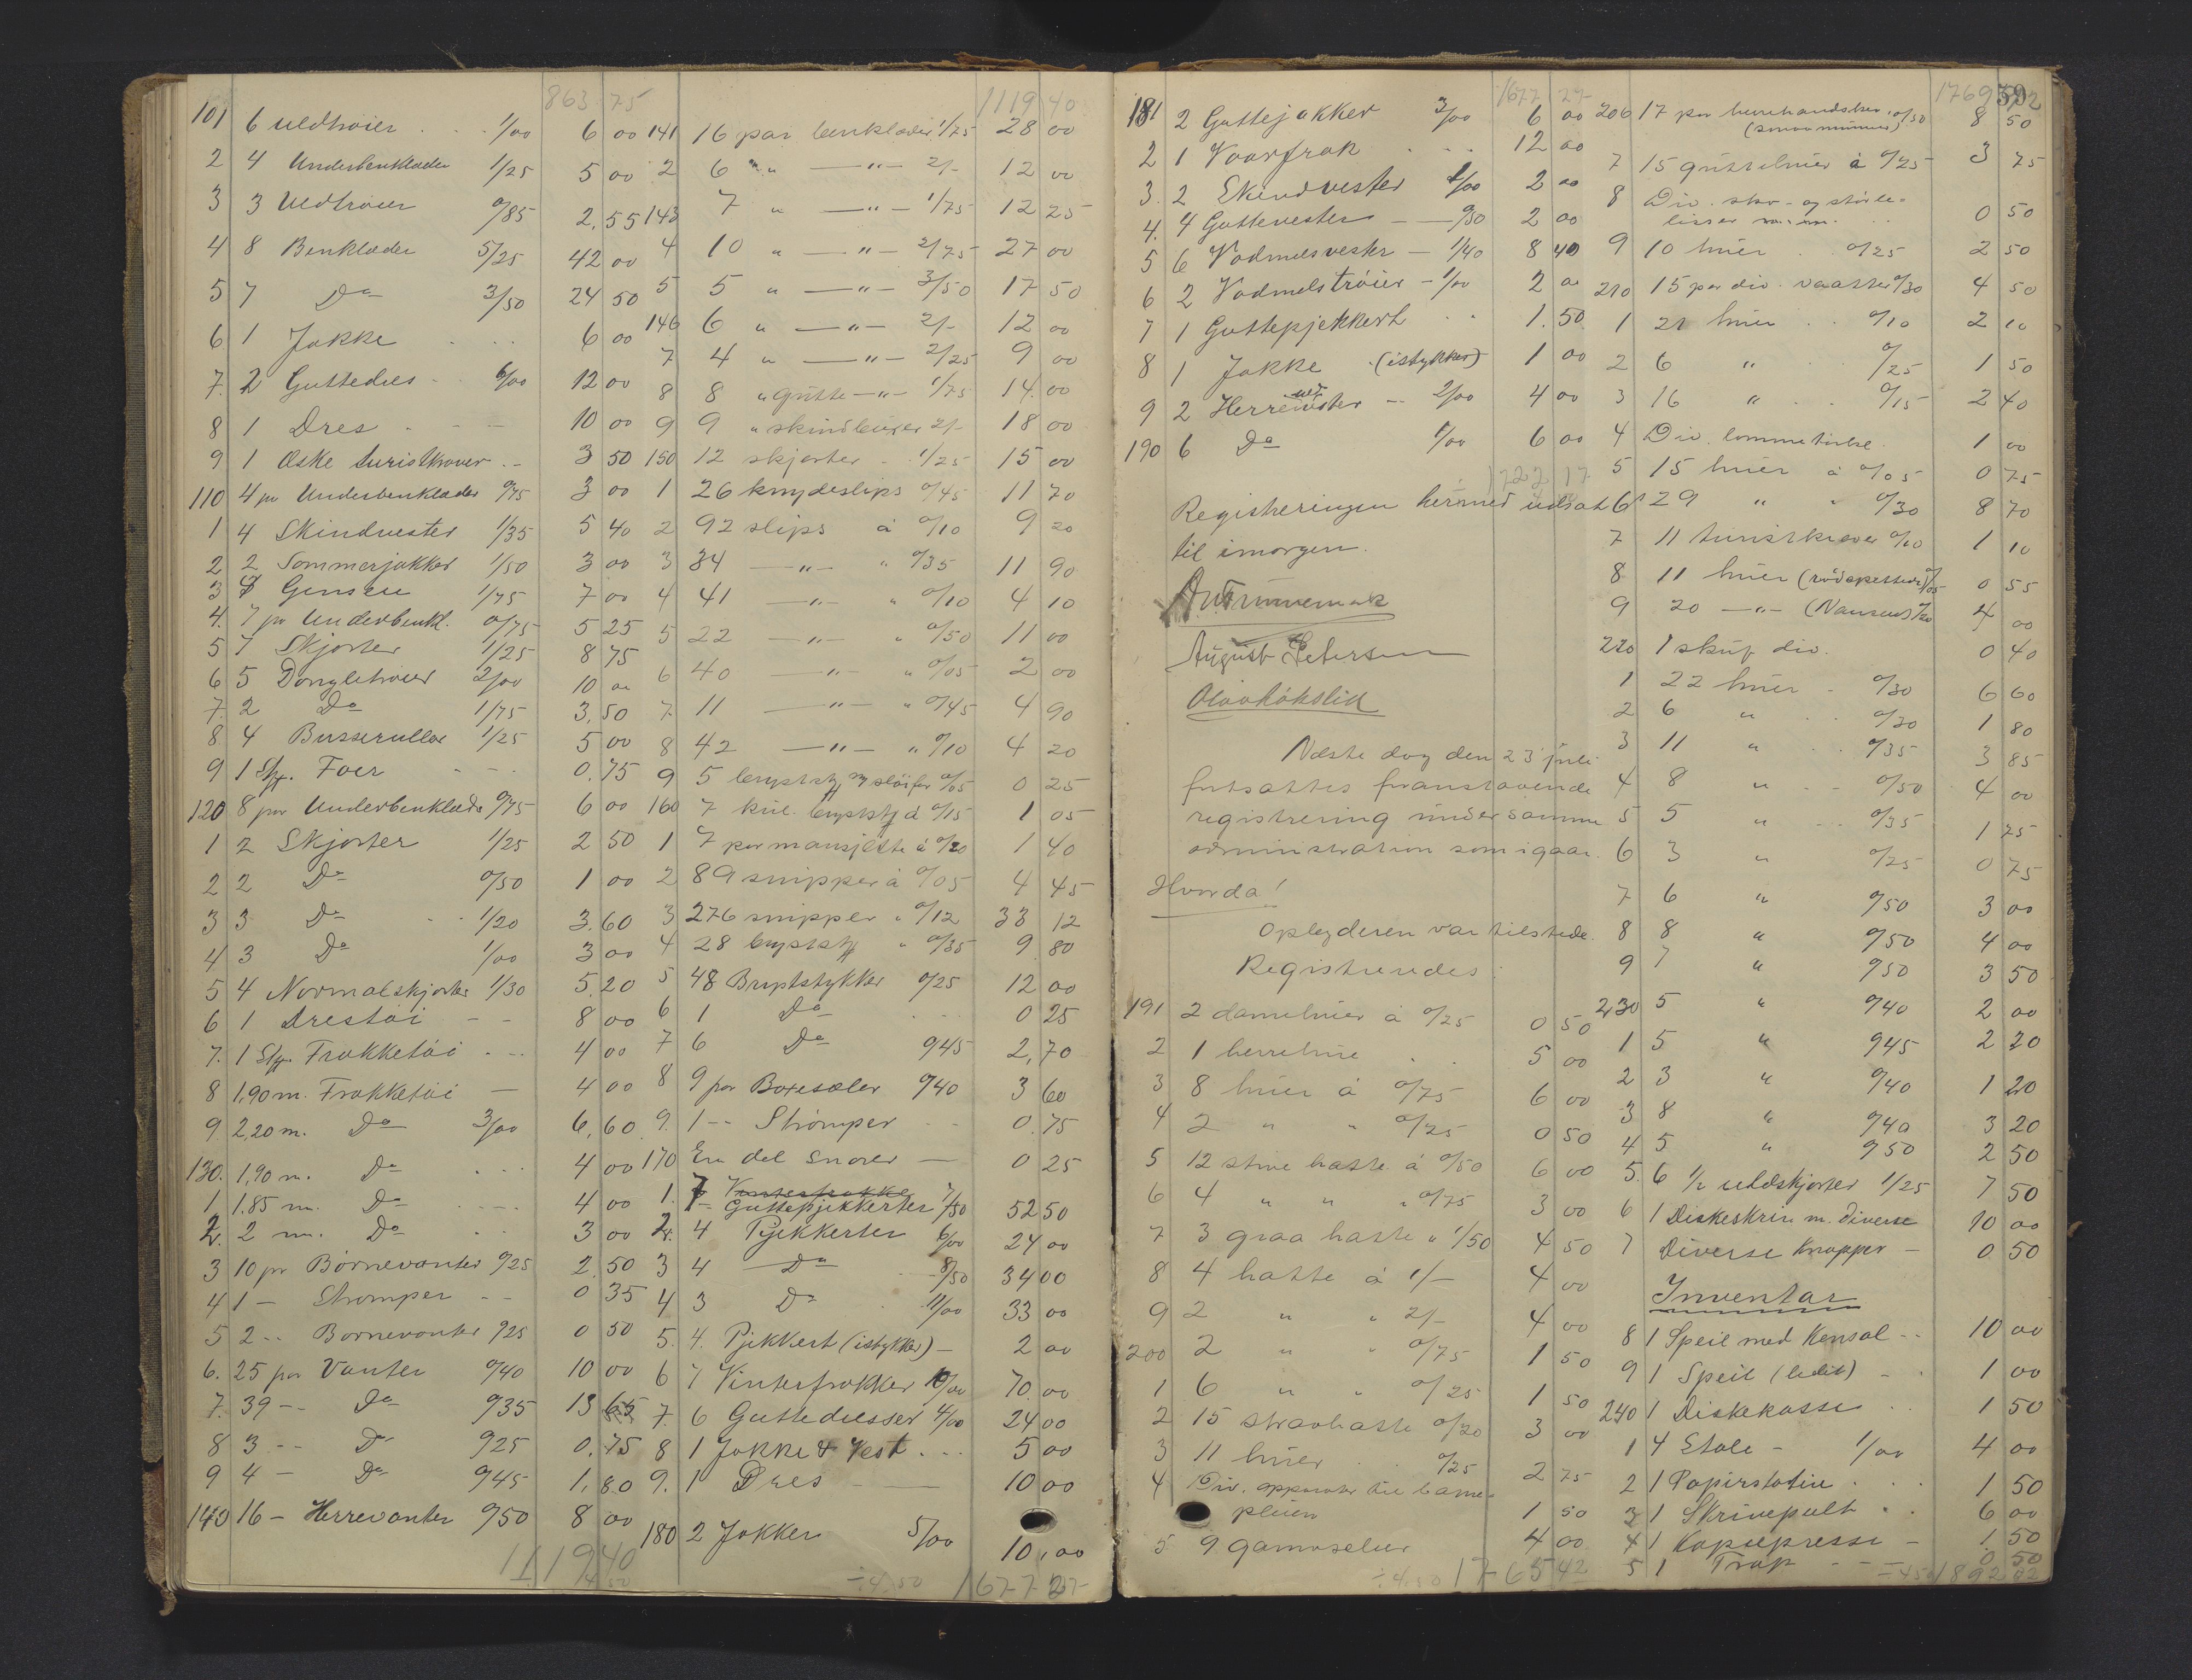 863 75
101 6 Uldtrøier 1/00 6 00
2 4 Underbenklæder 1/25 5 00
3 3 Uldtrøier 0/85 2,55
4 8 Benklæder 5/25 42 00
5 7 Do 3/50 24 50
6 1 Jakke 6 00
7. 2 Guttedres 6/00 12 00
8 1 Dres 10 00
9 1 Æske turistkraver 3 50
110 4 pr Underbenklæder 0/75 3 00
1 4 Skindvester 1/35 5 40
2 2 Sommerjakker 1/50 3 00
3 Gensere 1/75 7 00
4. 7 pr Underbenkl. 0/75 5 25
5 7 Skjorter 1/25 8 75
6 5 Dongletrøier 2/00 10 00
7. 2 Do 1/75 3,50
8 4 Busseruller 1/25 5 00
9 1 Stk. Foer 0.75
120 8 par Underbenklæder 0/75 6 00
1 2 Skjorter 1/25 2 50
2 2 Do 0/50 1 00
3 3 Do 1/20 3.60
4 3 Do 1/00 3 00
5 4 Normalskjorter 1/30 5.20
6 1 Drestøi 8 00
7. 1 Stk. Frakketøi 4 00
8 1,90 m. Frakketøi 4 00
9 2,20 m. Do 3/00 6,60
130. 1,90 m. Do 4 00
1 1.85 m. Do 4 00
2. 2 m. Do 3 00
3 10 pr Børnevanter 0/25 2.50
4 1 - Strømper 0 35
5 2 -- Børnevanter 0/25 0 50
6. 25 par Vanter 0/40 10 00
7. 39 -- Do 0/35 13 65
8 3 -- Do 0/25 0.75
9 4 - Do 0/45 1,80
140 16 - Herrevanter 0/50 8 00
1119 40
1119 40
141 16 par benklæder 1/75 28 00
2 6 " —"— 2/- 12 00
143 7 " —"— 1/75 12 25
4 10 " —"— 2/75 27 00
5 5 " —"— 3/50 17 50
146 6 " —"— 2/- 12 00
7 4 " —"— 2/25 9 00
8 8 " gutte —"— 1/75 14.00
9 9 " skindbuxer 2/- 18 00
150 12 skjorter 1/25 15 00
1 26 knydeslips 0/45 11 70
2 92 slips à 0/10 9 20
3 34 —"— " 0/35 11 90
4 41 —"— " 0/10 4 10
5 22 —"— " 0/50 11 00
6 40 —"— " 0/05 2 00
7. 11 —"— " 0/45 4 90
8 42 —"— " 0/10 4 20
9 5 brystst og sløifer 0/05 0 25
160 7 kul. brystst à 0/15 1 05
1 7 par mansjette à 0/20 1 40
2 89 snipper à 0/05 4 45
3 276 snipper " 0/12 33 12
4 28 brystst " 0/35 9 80
5 48 Bryststykker 0/25 12 00
6 1 Do 0 25
7 6 Do 0/45 2,70
8 9 par Boxesæler 0/40 3 60
9. 1 -- Strømper 0.75
170 En del Snører 0 25
1. 7 Vinterfrakke
Guttepjekkerter 7/50 52 50
2. 4 Pjekkerter 6/00 24 00
3 4 Do 8/50 34 00
4 3 Do 11/00 33 00
5. 4. Pjekkert (istykker) 2 00
6 7 Vinterfrakker 10/00 70.00
7. 6 Guttedresser 4/00 24 00
8 1 Jakke & Vest 5 00
9. 1 Dres 10 00
180 2 Jakker 5/00 10,00
÷ 4.50 1677 27
1677 27
181 2 Guttejakker 3/00 6 00
2 1 Vaarfrak 12 00
3. 2 Skindvester 1/00 2 00
4. 4 Guttevester 0/50 2 00
5 6 Vadmelsvester 1/40 8 40
6 2 Vadmelstrøier 1/00 2 00
7 1 Guttepjekkert 1.50
8 1 Jakke (istykker) 1 00
9 2 Herrevester 2/00 4 00
190 6 Do 1/00 6 00
1722 17
Registreringen hermed udsat
til imorgen.
August Petersen
Næste dag den 23 juli
fortsattes foranstaaende
registrering under samme
administration som igaar.
Hvorda!
Opbyderen var tilstede.
Registreredes:
191 2 damehuer à 0/25 0 50
2 1 herrehue 5 00
3 8 huer à 0/75 6 00
4 2 " " 0/25 0 50
5 12 stive hatte à 0/50 6 00
6 4 " " " 0/75 3 00
7 3 graa hatte " 1/50 4 50
8 4 hatte à 1/- 4 00
9 2 " " 2/- 4 00
200 2 " " 0/75 1 50
1 6 " " 0/25 1 50
2 15 straahatte 0/20 3 00
3 11 huer 0/25 2 75
4 Div. apparater til barne-
pleien 1 50
5 9 gamascher 4 00
÷ 4.50 1765 42
206 17 par herrehandsker 0/50 8 50
(smaa numere)
7 15 guttehuer à 0/25 3 75
8 Div. sko- og støvle-
lisser m.m. 0 50
9 10 huer 0/25 2 50
210 15 par div. vaatter 0/30 4 50
1 21 huer 0/10 2 10
2 6 " 0/25 1 50
3 16 " 0/15 2 40
4 Div. lommetørkl. 1 00
5 15 huer à 0/05 0 75
6 29 " " 0/30 8 70
7 11 turistkraver 0/10 1 10
8 11 huer 0/05 0 55
9 20 —"— (Nansens) 0/20 4 00
220 1 skuf div. 0 40
1 22 huer 0/30 6 60
2 6 " 0/30 1 80
3 11 " 0/35 3 85
4 8 " 0/50 4 00
5 5 " 0/35 1 75
6 3 " 0/25 0 75
7 6 " 0/50 3 00
8 8 " 0/50 4 00
9 7 " 0/50 3 50
230 5 " 0/40 2 00
1 5 " 0/45 2 20
2 3 " 0/40 1 20
3 8 " 0/40 3 20
4 5 " 0/50 2 50
5. 6 1/2 uldskjorter 1/25 7 50
6 1 Diskeskrin m. diverse 10 00
7 Diverse knapper 0.50
Inventar
8 1 Speil med Konsol 10 00
9 1 Speil (lidet) 1 00
240 1 Diskekasse 1 50
1 4 Stole - 1/00 4 00
2 1 Papirstativ 1 50
3 1 Skrivepult 6 00
4 1 Kopiepresse 1.50
5 1 Trap 0 50